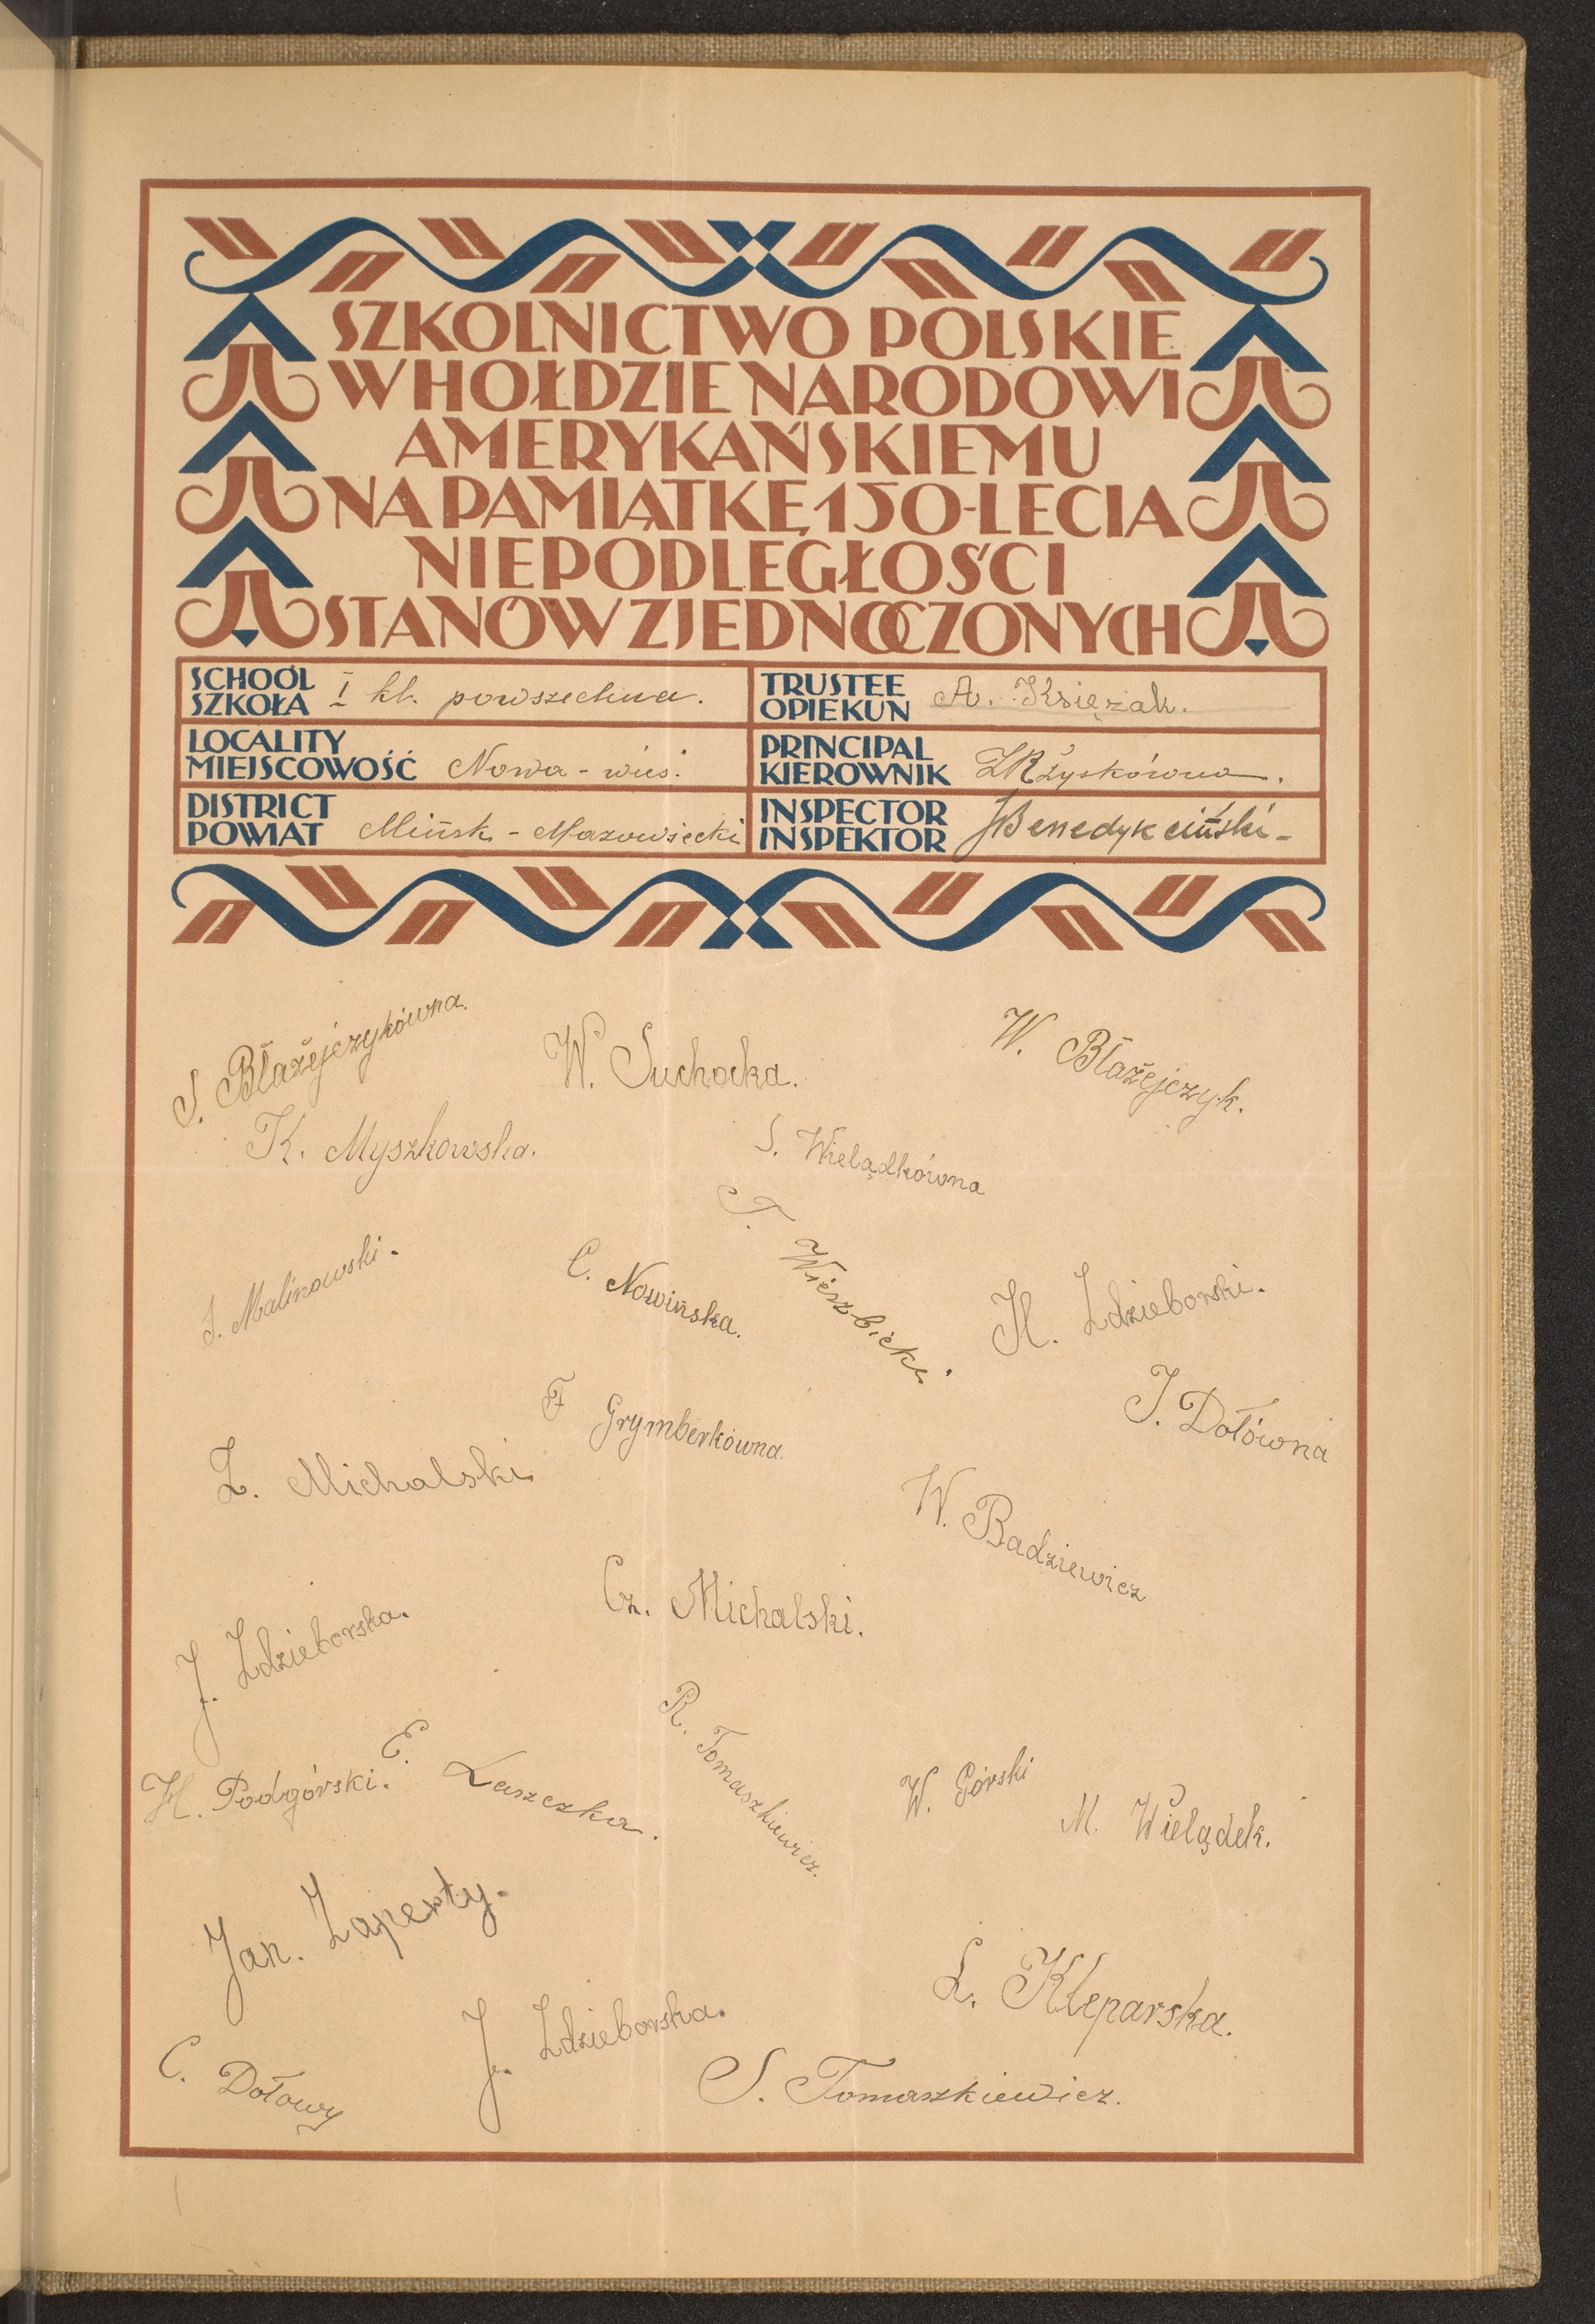 SZKOLNICTWO POLSKIE
W HOŁDZIE NARODOWI
AMERYKAŃSKIEMU
NA PAMIĄTKĘ 150-LECIA
NIEPODLEGŁOŚCI
STANÓW ZJEDNOCZONYCH
SCHOOL
SZKOŁA I kl. powszechna.
TRUSTEE
OPIEKUN A. Księżak.
LOCALITY
MIEJSCOWOŚĆ Nowa - wieś.
PRINCIPAL
KIEROWNIK
DISTRICT
POWIAT Mińsk - Mazowiecki
INSPECTOR
INSPEKTOR JBenedykciński-
S. Błażejczykówna.
W. Suchocka.
W. Błażejczyk.
K. Myszkowska.
S. Wielądkówna
T. Wierzbicki.
J. Malinowski.
C. Nowińska.
H. Zdzieborski.
J. Dołówna
F Grymberkówna.
Z. Michalski
W. Badziewicz
Cz. Michalski.
J. Zdzieborska.
R. Tomaszkiewicz.
H. Podgórski.
E. Laszczka.
W. Górski
M. Wielądek.
Jan. Zaperty.
L. Kleparska.
J. Zdzieborska.
C. Dołowy
S. Tomaszkiewicz.